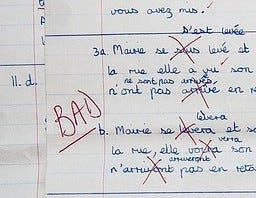 vous avez mis.
s'est levée
3a. Marie se suis levé et
la rue elle a vu son
ne sont pas arrivés
11. d.
n'ont pas arrive en re
BAD
lèvera
b. Marie se levera et so
verra
la rue, elle voira son
arriveront
n'arrivont pas en reta